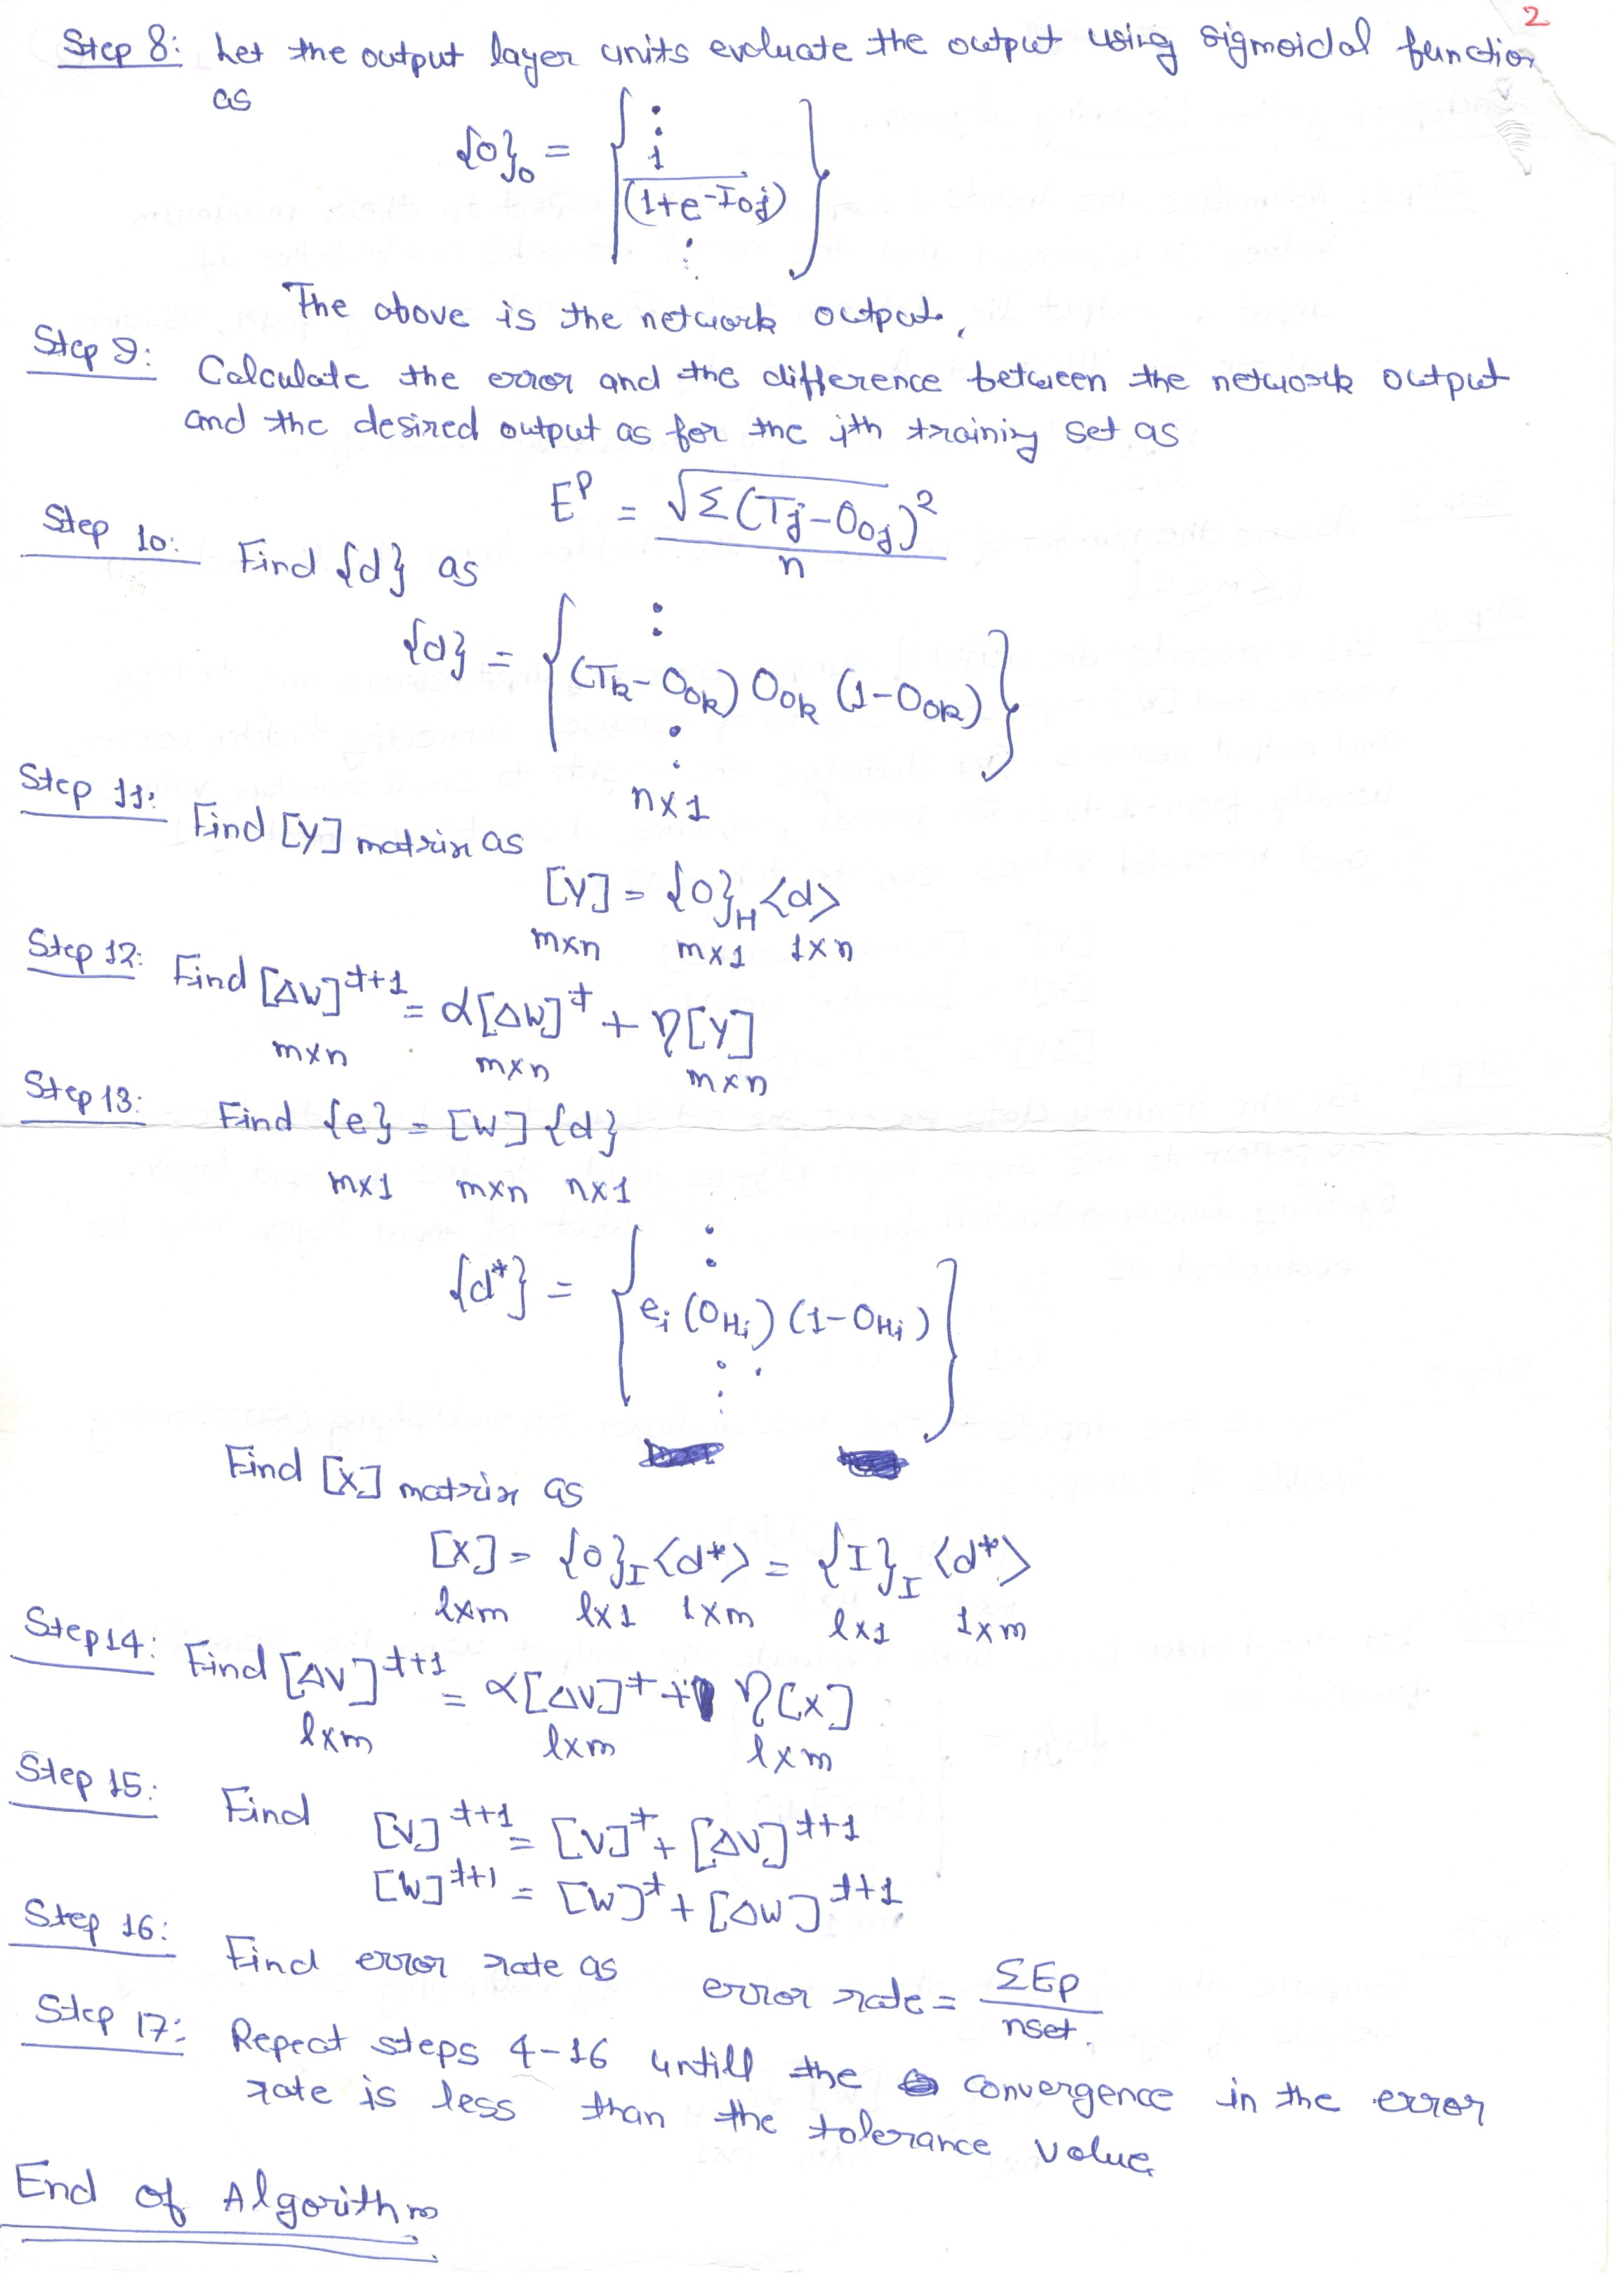 2
Step 8: Let the output layer units evaluate the output using sigmoidal function
as
{O}o = { ⋮ 1/(1+e^-Ioj) ⋮ }
The above is the network output.
Step 9: Calculate the error and the difference between the network output
and the desired output as for the jth training set as
E^p = √Σ(Tj-Ooj)² / n
Step 10: Find {d} as
{d} = { ⋮ (Tk-Ook) Ook (1-Ook) ⋮ }
n×1
Step 11: Find [Y] matrix as
[Y] = {O}H <d>
m×n m×1 1×n
Step 12: Find [ΔW]^t+1 = α[ΔW]^t + η[Y]
m×n m×n m×n
Step 13: Find {e} = [W] {d}
m×1 m×n n×1
{d*} = { ⋮ ei (OHi) (1-OHi) ⋮ }
Find [X] matrix as
[X] = {O}I <d*> = {I}I <d*>
l×m l×1 1×m l×1 1×m
Step 14: Find [ΔV]^t+1 = α[ΔV]^t + η[X]
l×m l×m l×m
Step 15: Find [V]^t+1 = [V]^t + [ΔV]^t+1
[W]^t+1 = [W]^t + [ΔW]^t+1
Step 16: Find error rate as error rate = ΣEp / nset.
Step 17: Repeat steps 4-16 untill the convergence in the error
rate is less than the tolerance value
End of Algorithm